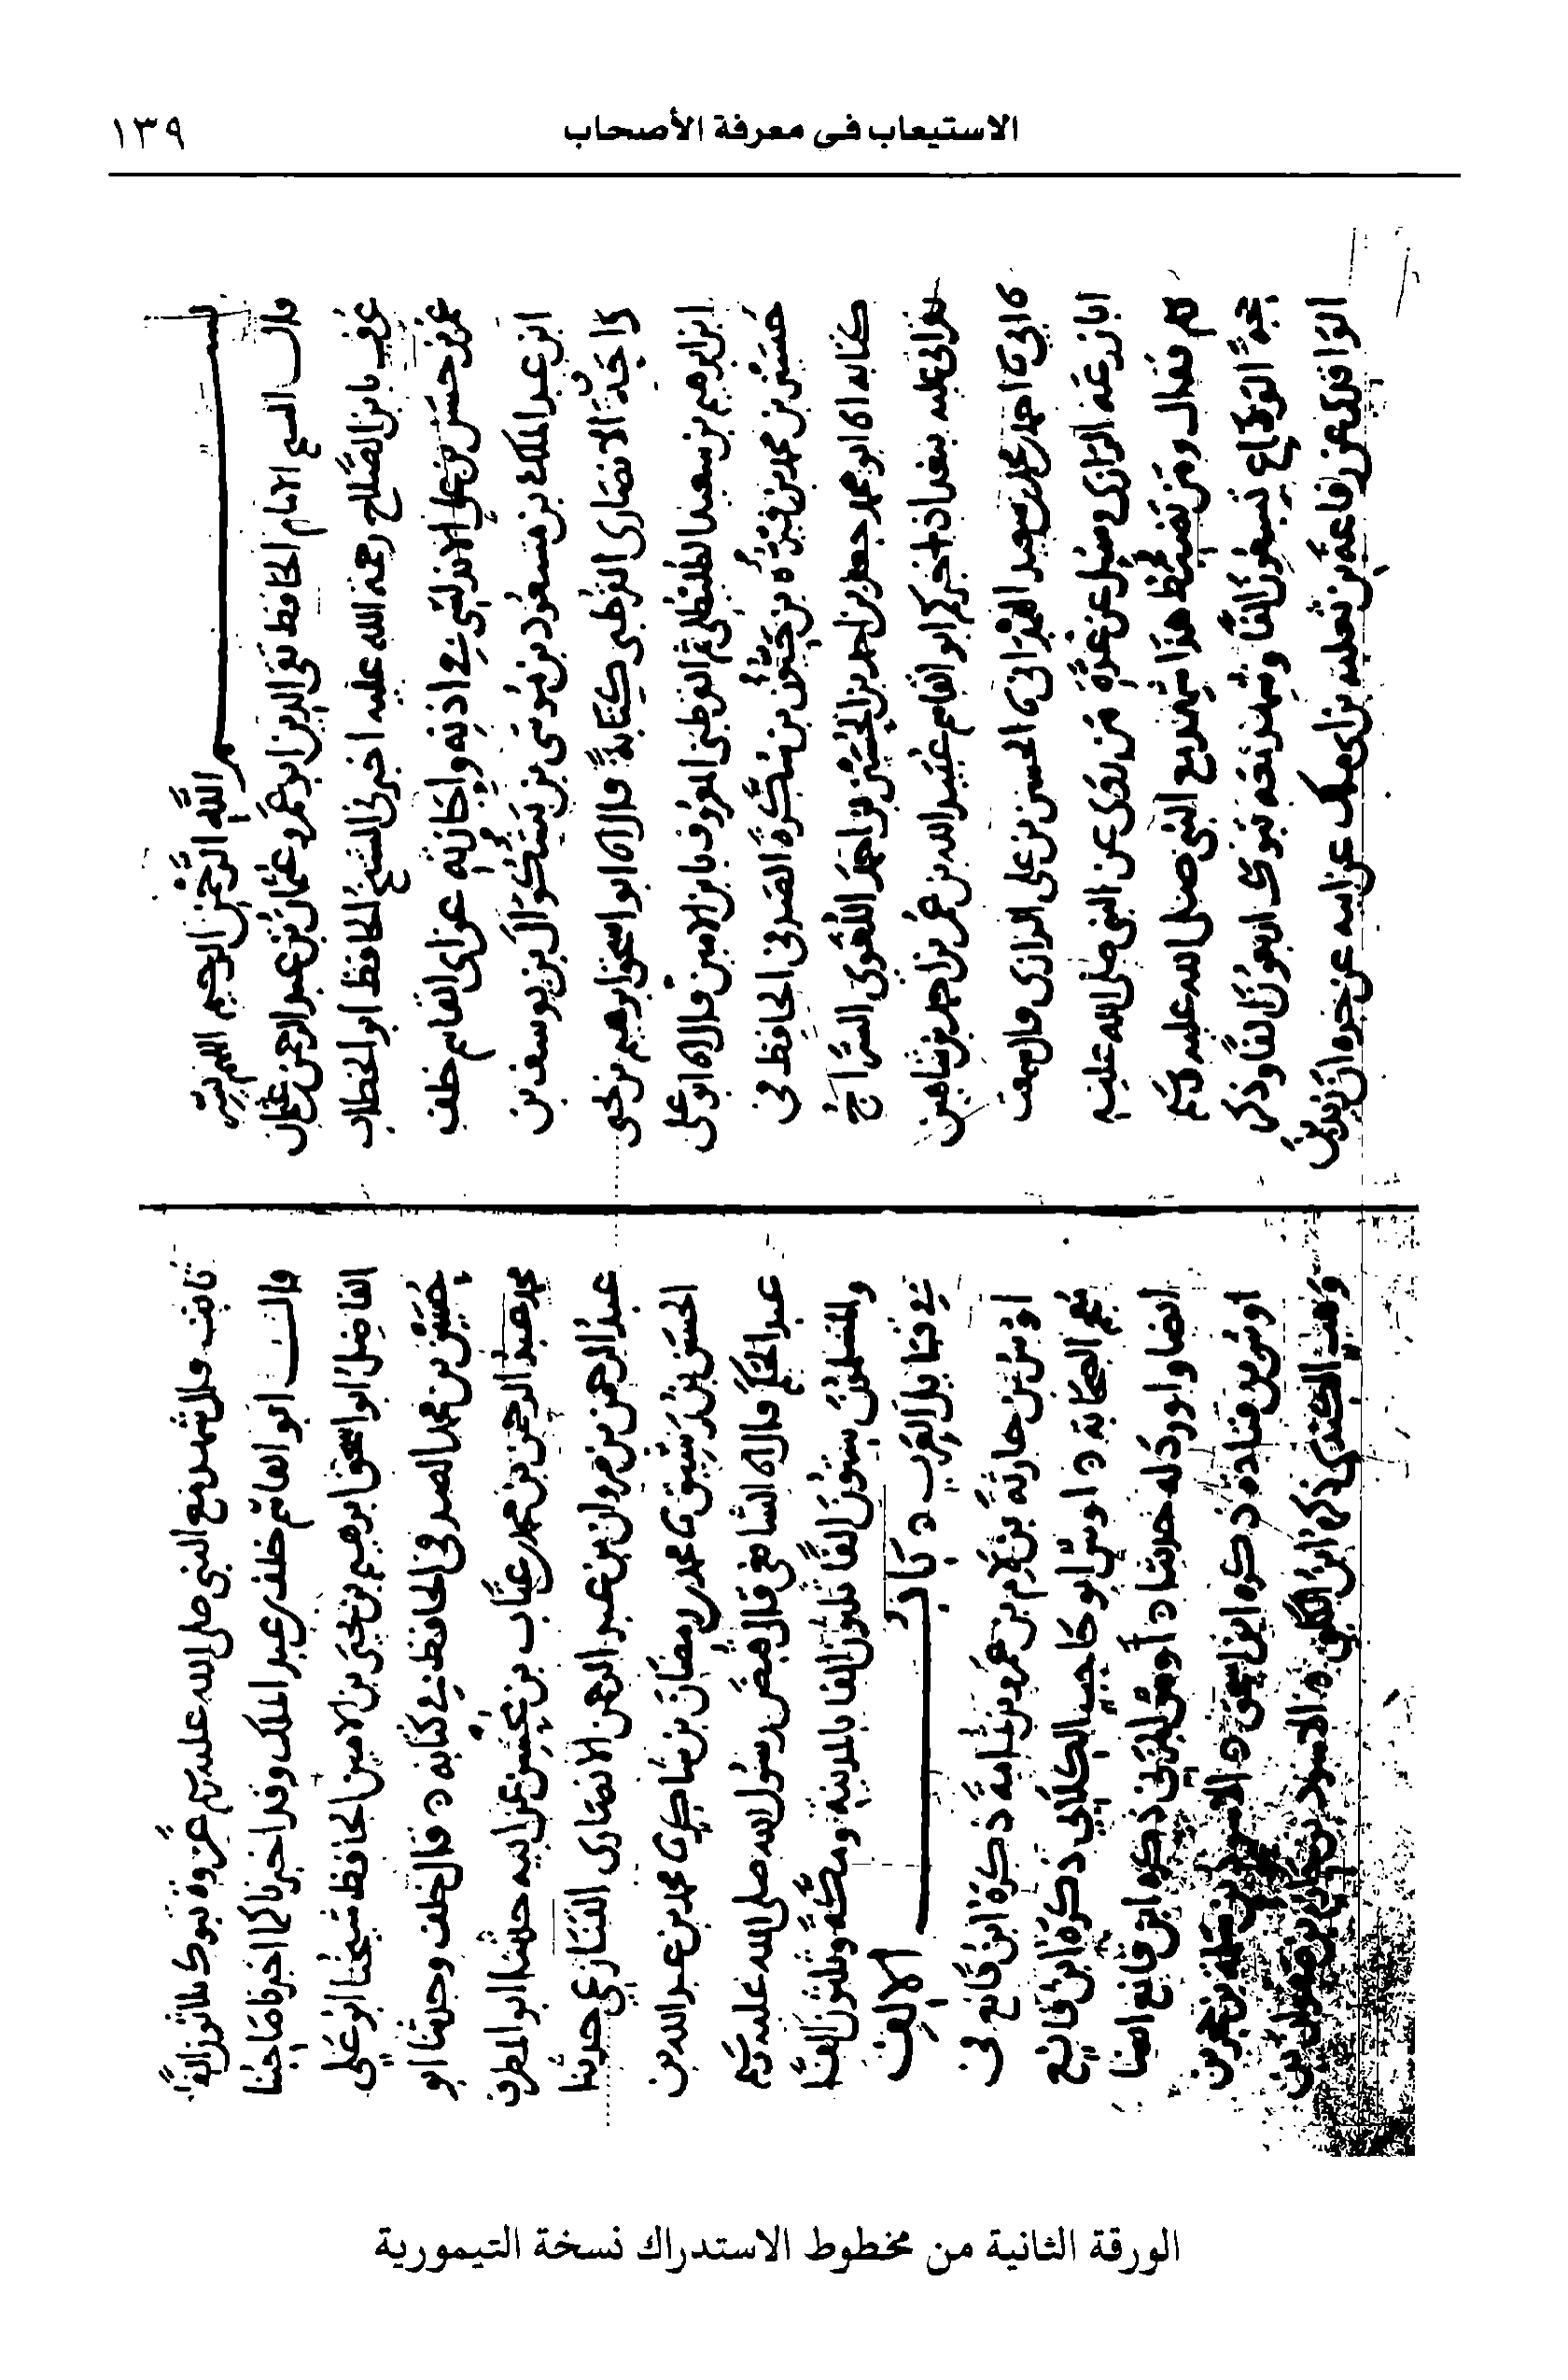 الاستيعاب فى معرفة الأصحاب
١٣٩
بسم الله الرحمن الرحيم اللهم يسر
قال الشيخ الامام الحافظ تقى الدين ابو عمرو عثمان بن عبد الرحمن بن عثمان
عرف بابن الصلاح رحمة الله عليه اخبرنى الشيخ الحافظ ابو الخطاب
عمر بن حسن بن على الاندلسى فى اذنه واجازته عن ابى القاسم خلف
ابن عبد الملك بن مسعود بن موسى بن بشكوال بن يوسف بن
الانصارى القرطبى كتابةً قال انا ابو اسحق ابرهيم بن يحيى
ابن ابرهيم بن سعيد الطليطلى ثم القرطبى المعروف بابن الامين قال انا ابو على
حسين بن محمد بن فيره بن حيون بن سكرة الصدفى الحافظ فى
كتابه انا ابو محمد جعفر بن احمد بن الحسين بن احمد اللغوى السراج
بقراتى عليه ببغداذ اخبركم ابو القاسم عبيد الله بن عمر بن احمد بن شاهين
نا ابى نا احمد بن محمد بن سعيد الهمدانى نا الحسن بن على الرازى قال سمعت
ابا زرعة الرازى وسئل عن عدة من روى عن النبى صلى الله عليه
وسلم فقال ومن يضبط هذا شهد مع النبى صلى الله عليه وسلم
حجة الوداع تسعون الفًا وشهد معه تبوك اربعون الفًا وذكر
الواقدى عن رفاعة بن ثعلبة بن ابى ملك عن ابيه عن جده ان زيد بن
ثابت قال شهد مع النبى صلى الله عليه وسلم غزوة تبوك ثلاثون الفًا
قال ابو القاسم خلف بن عبد الملك وقد اخبرنا كما اخبر صاحبنا
الفاضل ابو اسحق ابرهيم بن يحيى بن الامين الحافظ شيخنا ابو على
حسين بن محمد الصدفى الحافظ فى كتابه قال خلف وحدثنا ابو
محمد عبد الرحمن بن محمد بن عتاب بن محسن عن ابيه حدثنا ابو المطرف
عبد الرحمن بن مروان بن عبد الرحمن الانصارى القنازعى حدثنا
الحسن بن رشيق نا محمد بن رمضان بن شاكر نا محمد بن عبد الله بن
عبد الحكم قال انا الشافعى قال قبض رسول الله صلى الله عليه وسلم
والمسلمون ستون الفًا ثلثون الفا بالمدينه ومكة وثلثون الفًا
فى قبايل العرب باب الالف
اوس بن حارثة بن لام بن عمرو بن ثمامة ذكره ابن قانع فى
معجم الصحابة اوس ابو حاجب الكلابى ذكره ابن قانع
ايضا واورد له حديثا أوس المزنى ذكره ابن قانع ايضا
اوس بن قتادة ذكره ابن اسحق الاسود بن سلمة بن حجر بن
وهب الكندى ذكره ابن الكلبى الاسود بن
الورقة الثانية من مخطوط الاستدراك نسخة التيمورية